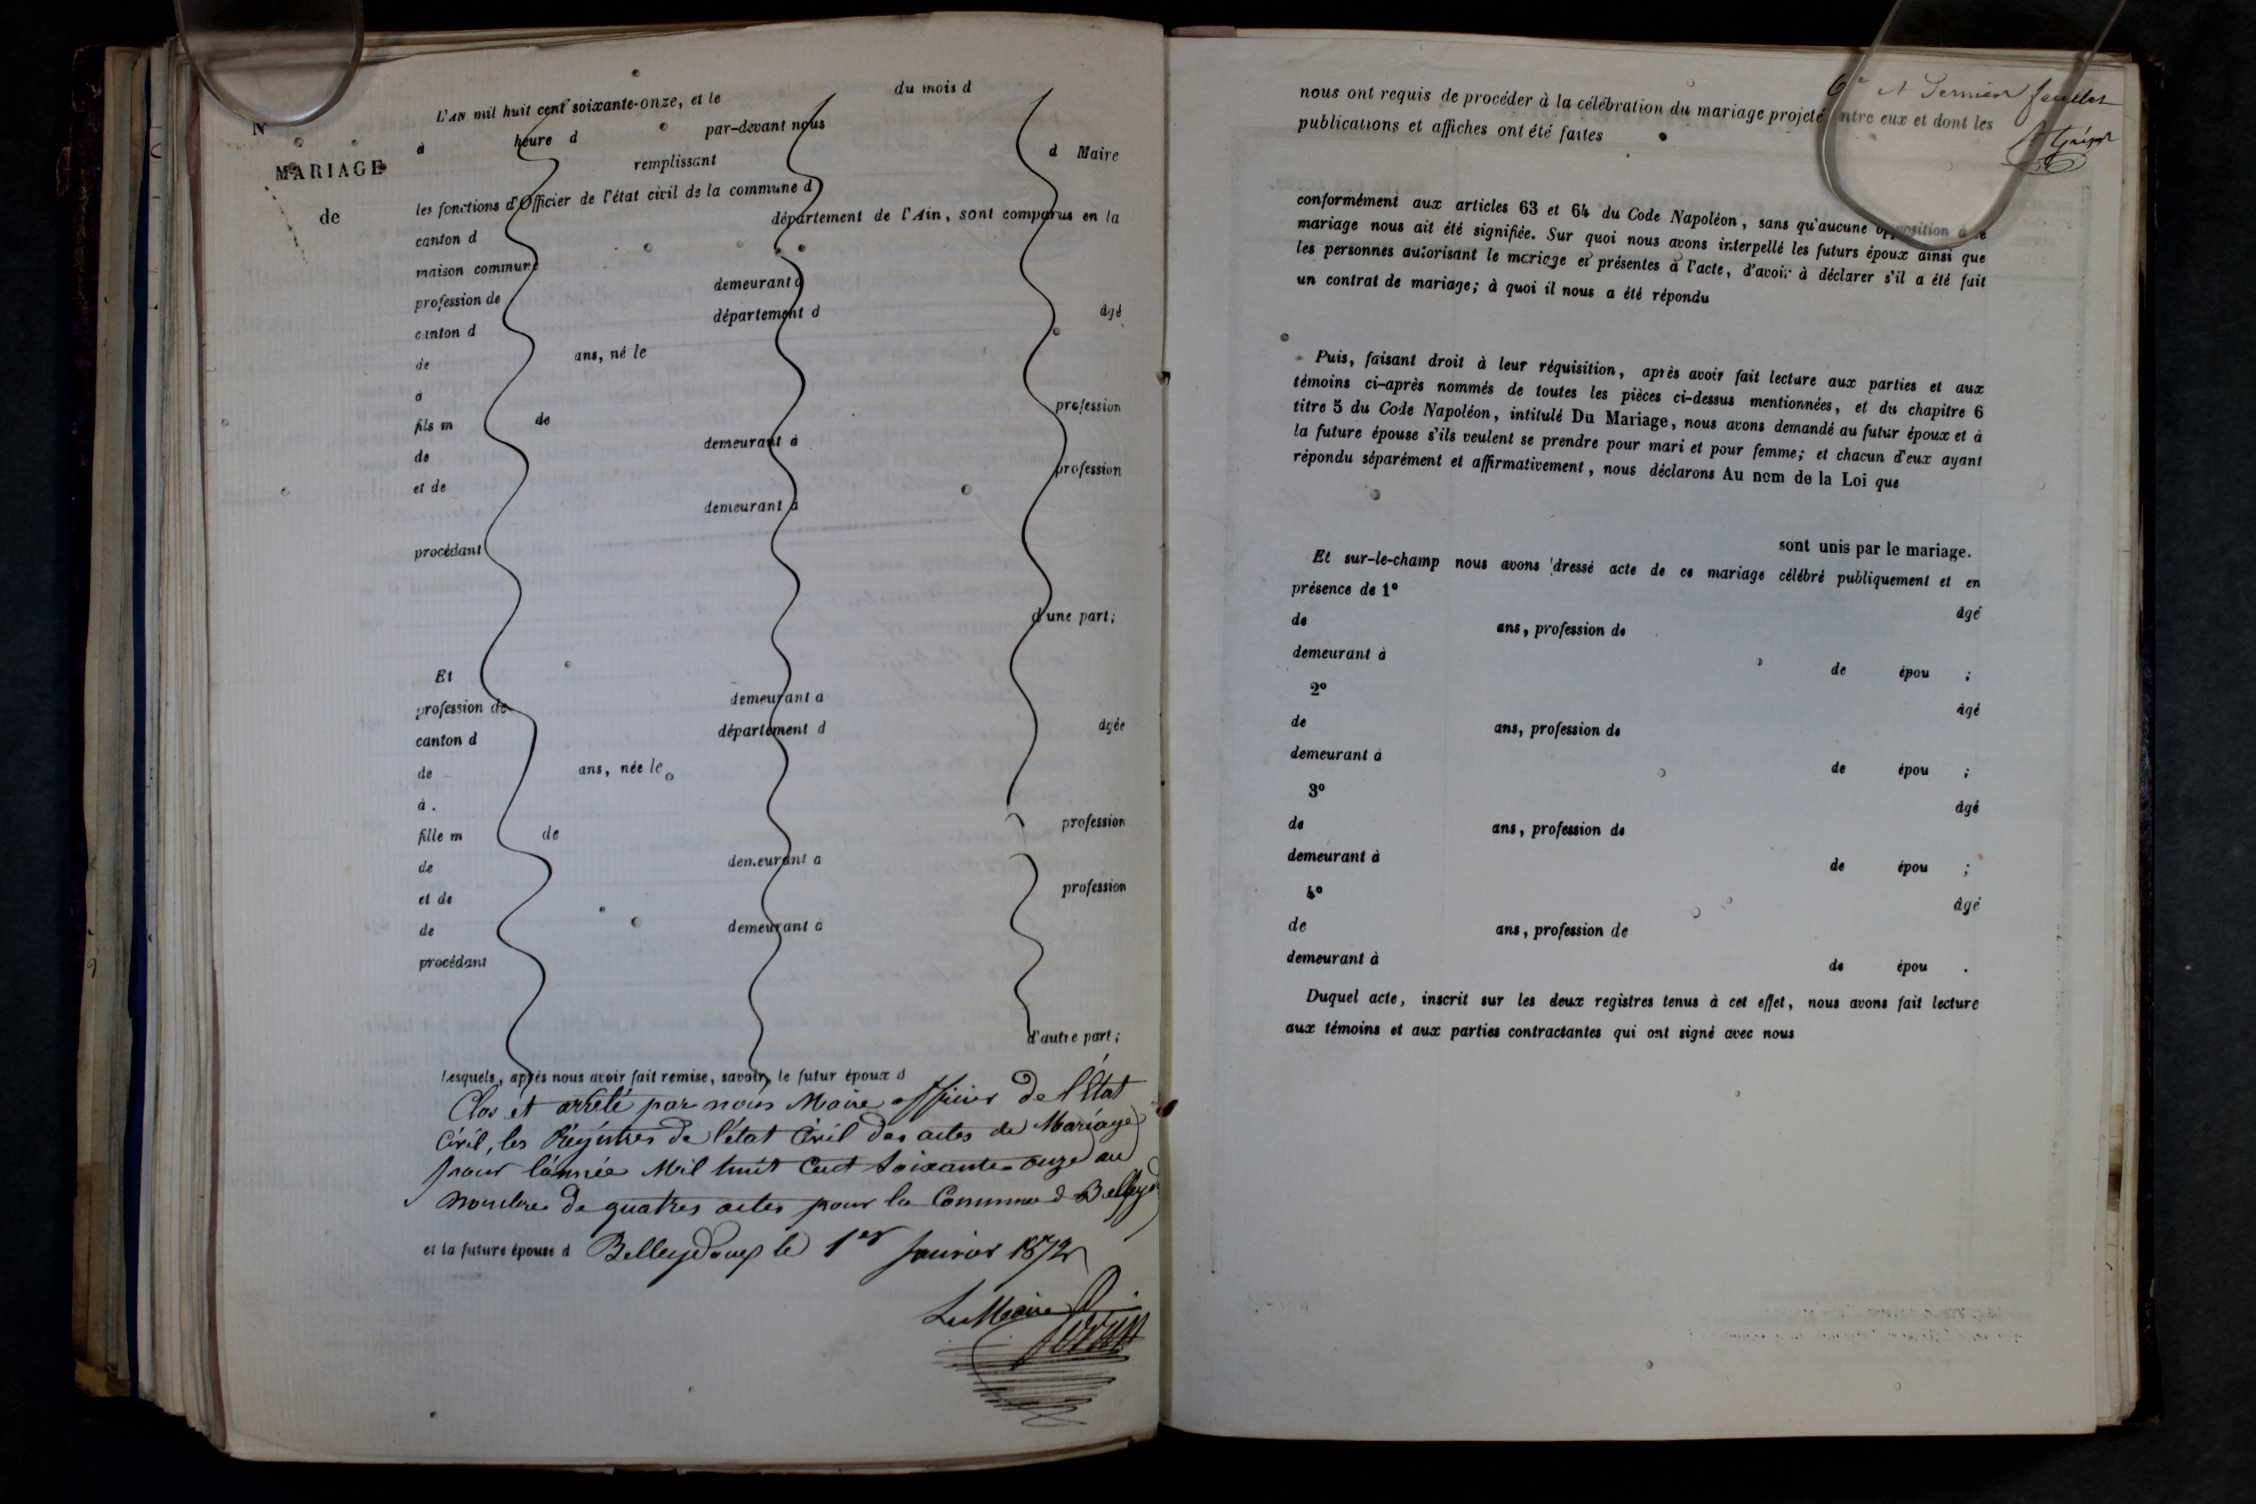 N
MARIAGE
de
L'AN mil huit cent soixante-onze, et le du mois d
à heure d par-devant nous
remplissant d Maire
les fonctions d'Officier de l'état civil de la commune d
canton d département de l'Ain, sont comparus en la
maison commune
profession de demeurant à
canton d département d âgé
de ans, né le
à
fils m de profession
de demeurant à
et de profession
demeurant à
procédant
d'une part;
Et
profession de demeurant à
canton d département d âgée
de ans, née le
à
fille m de profession
de demeurant à
et de profession
de demeurant à
procédant
d'autre part;
Lesquels, après nous avoir fait remise, savoir, le futur époux d
Clos et arrêté par nous Maire officier de l'État
Civil, les Régistres de l'état Civil des actes de Mariage
pour l'année Mil huit Cent soixante onze au
nombre de quatres actes pour la Commune d
et la future épouse d Belleydoux le 1er Janvier 1872
Le Maire
6e et Dernier feuillet
nous ont requis de procéder à la célébration du mariage projeté entre eux et dont les
publications et affiches ont été faites
conformément aux articles 63 et 64 du Code Napoléon, sans qu'aucune opposition à ce
mariage nous ait été signifiée. Sur quoi nous avons interpellé les futurs époux ainsi que
les personnes autorisant le mariage et présentes à l'acte, d'avoir à déclarer s'il a été fait
un contrat de mariage; à quoi il nous a été répondu
Puis, faisant droit à leur réquisition, après avoir fait lecture aux parties et aux
témoins ci-après nommés de toutes les pièces ci-dessus mentionnées, et du chapitre 6
titre 5 du Code Napoléon, intitulé Du Mariage, nous avons demandé au futur époux et à
la future épouse s'ils veulent se prendre pour mari et pour femme; et chacun d'eux ayant
répondu séparément et affirmativement, nous déclarons Au nom de la Loi que
sont unis par le mariage.
Et sur-le-champ nous avons dressé acte de ce mariage célébré publiquement et en
présence de 1° âgé
de ans, profession de
demeurant à de épou ;
2° âgé
de ans, profession de
demeurant à de épou ;
3° âgé
de ans, profession de
demeurant à de épou ;
4° âgé
de ans, profession de
demeurant à de épou .
Duquel acte, inscrit sur les deux registres tenus à cet effet, nous avons fait lecture
aux témoins et aux parties contractantes qui ont signé avec nous